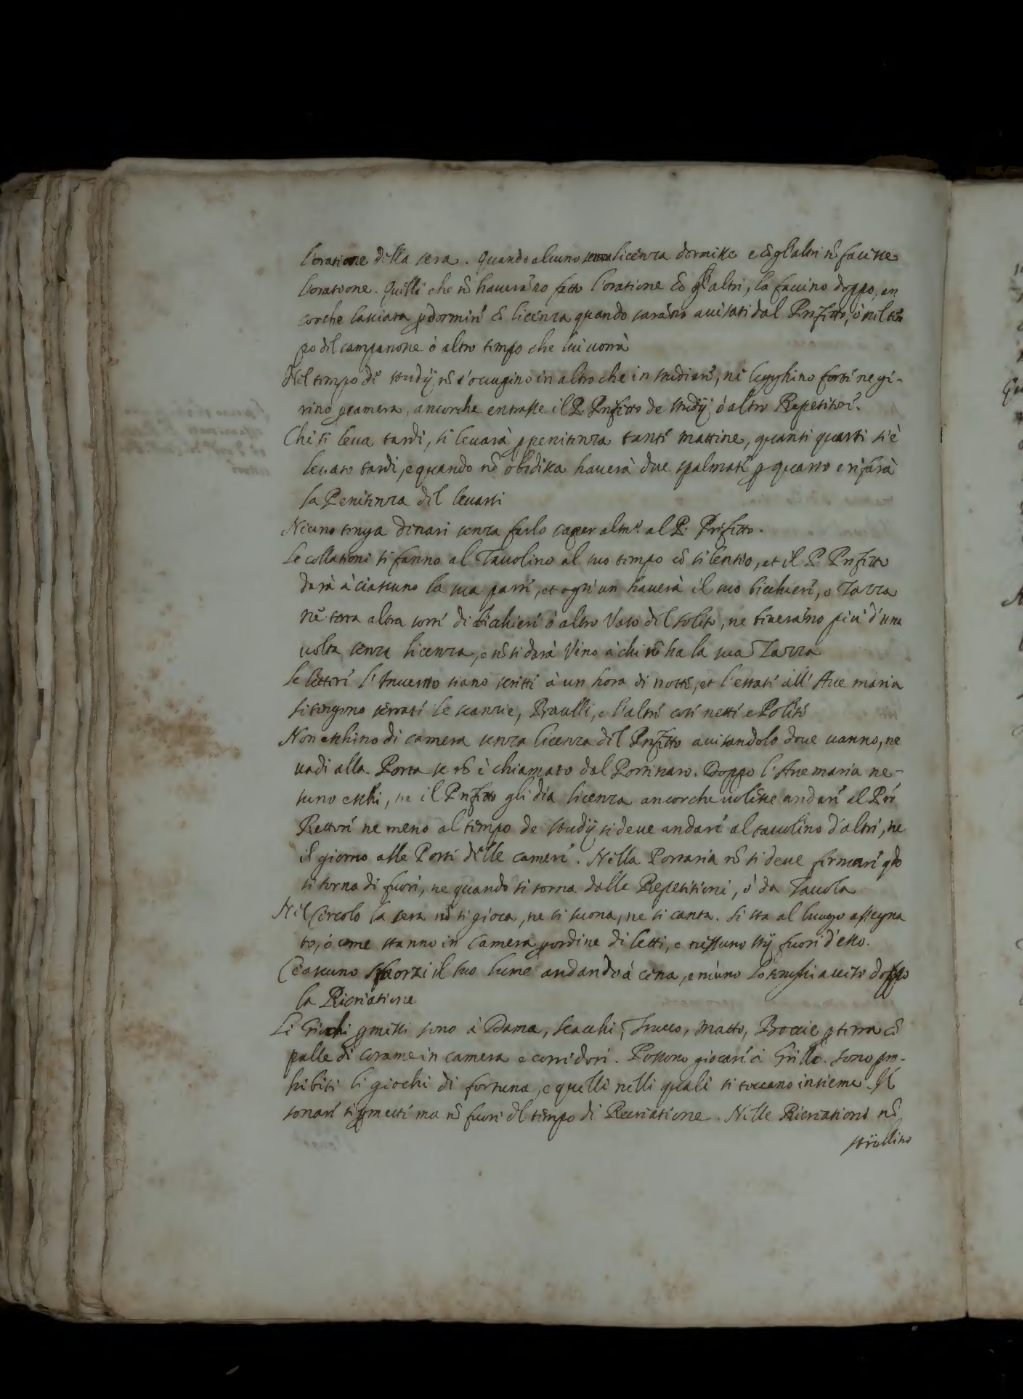 l'oratione della sera. Quando alcuno senza licenza dormisse e cõ gl'altri nõ facesse
l'oratione. Quelli che nõ haverãno fatto l'oratione cõ gl'altri, la faccino doppo, an
corche lasciata p dormire cõ licenza quando sarãno avisati dal Prefetto, ò nel tẽ
po del campanone ò altro tempo che lui vorrà
Nel tempo de studij nõ s'occupino in altro che in studiare, ne legghino forte ne gi-
rino p camera, ancorche entrasse il P. Prefetto de studij ò altro Repetitore.
Chi si leva tardi, si levarà p penitenza tante mattine, quanti quarti s'è
levato tardi, e quando nõ obedisca haverà due spalmate p quarto e rifarà
la Penitenza del levarsi
Niuno tenga denari senza farlo saper al P. Prefetto.
Le collationi si fanno al Tavolino al suo tempo cõ silentio, et il P. Prefetto
darà à ciascuno la sua parte, et ogn'un haverà il suo bicchiere, o Tazza
ne altra sorte di bichieri ò altro Vaso del solito, ne beverãno piu d'una
volta senza licenza, e nõ si darà Vino à chi nõ ha la sua Tazza
Le lettere l'Inverno siano scritti à un hora di notte, et l'estate all'Ave maria
si tengono serrati le scanzie, Bauli, e l'altre cose nette e Polite
Non eschino di camera senza licenza del Prefetto avisandolo dove vanno, ne
vadi alla Porta se nõ è chiamato dal Portinaro. Doppo l'Ave maria ne-
suno eschi, ne il Prefetto gli dia licenza ancorche volesse andare al P.
Rettore ne meno al tempo de studij si deve andare al tavolino d'altri, ne
il giorno alle Porte delle camere. Nella Portaria nõ si deve fermare qdo
si torna di fuori, ne quando si torna dalle Repetitioni, ò da Tavola
Nel Circolo la sera nõ si gioca, ne si suona, ne si canta. Si sta al luogo assegna
to, ò come stanno in Camera p ordine di letti, e nissuno stij fuori d'esso.
Ciascuno smorzi il suo lume andando à cena, e niuno lo tenghi acceso doppo
la Ricreatione
Li Giochi pmessi sono à Dama, Scacchi, Trucco, Matto, Boccie p terra cõ
palle di corame in camera e corridori. Possono giocare à Grillo. Sono pro-
hibiti li giochi di fortuna, e quelli nelli quali si toccano insieme. Il
sonare si pmette ma nõ fuori del tempo di Recreatione. Nelle Ricreationi nõ
strillino